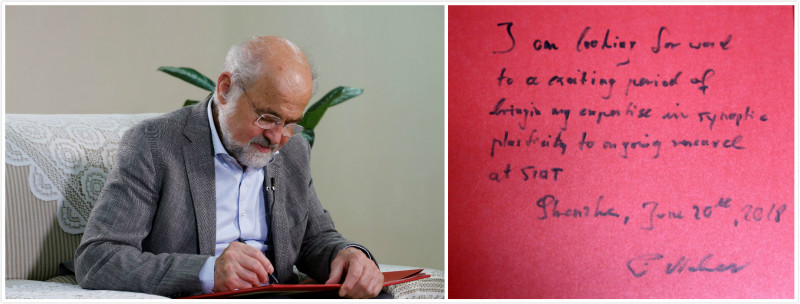 I am looking forward
to a exciting period of
bringin my expertise in synaptic
plasticity to ongoing research
at SIAT
Shenzhen, June 20th, 2018
E Neher